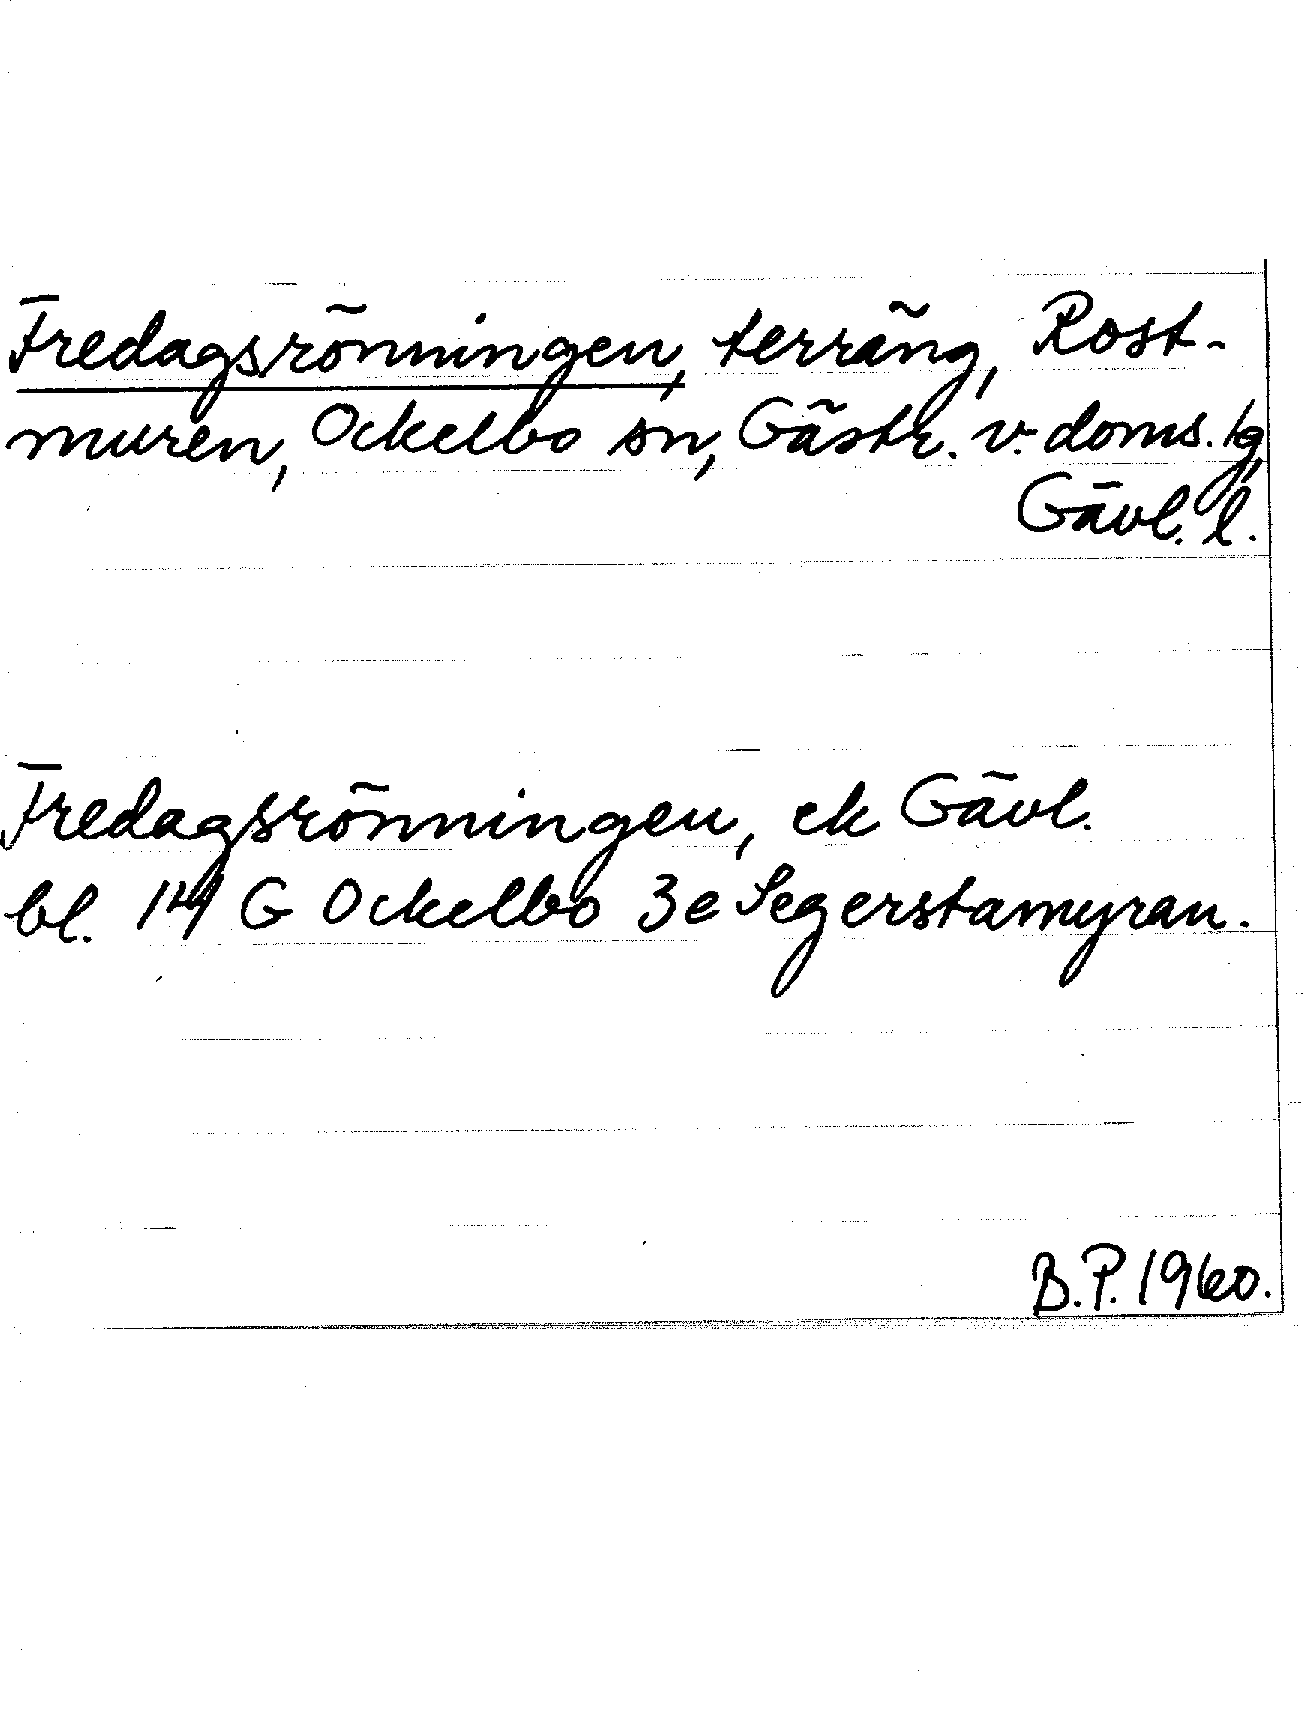 Fredagsrönningen, terräng, Rost-
muren, Ockelbo sn, Gästr. v. doms. lg,
Gävl. l.
Fredagsrönningen, ek Gävl.
bl. 14 G Ockelbo 3e Segerstamyran.
B.P. 1960.